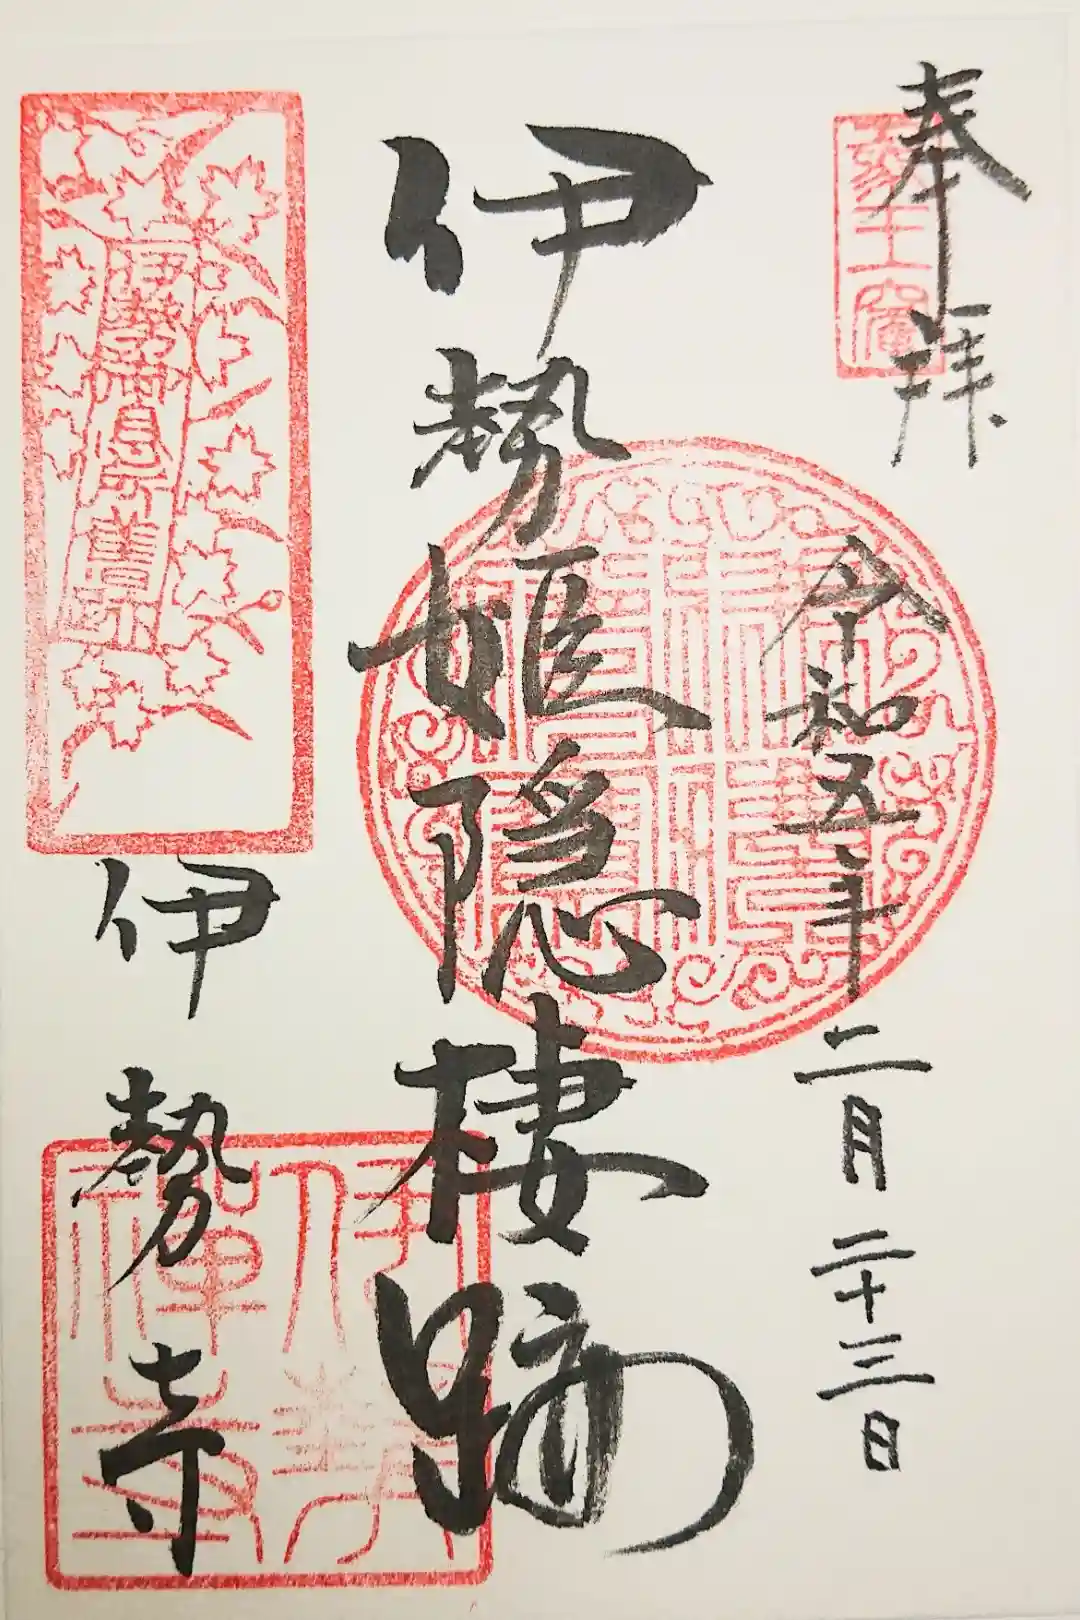 奉拝
令和五年二月二十三日
伊勢姫隠棲跡
伊勢寺
伊勢禅寺